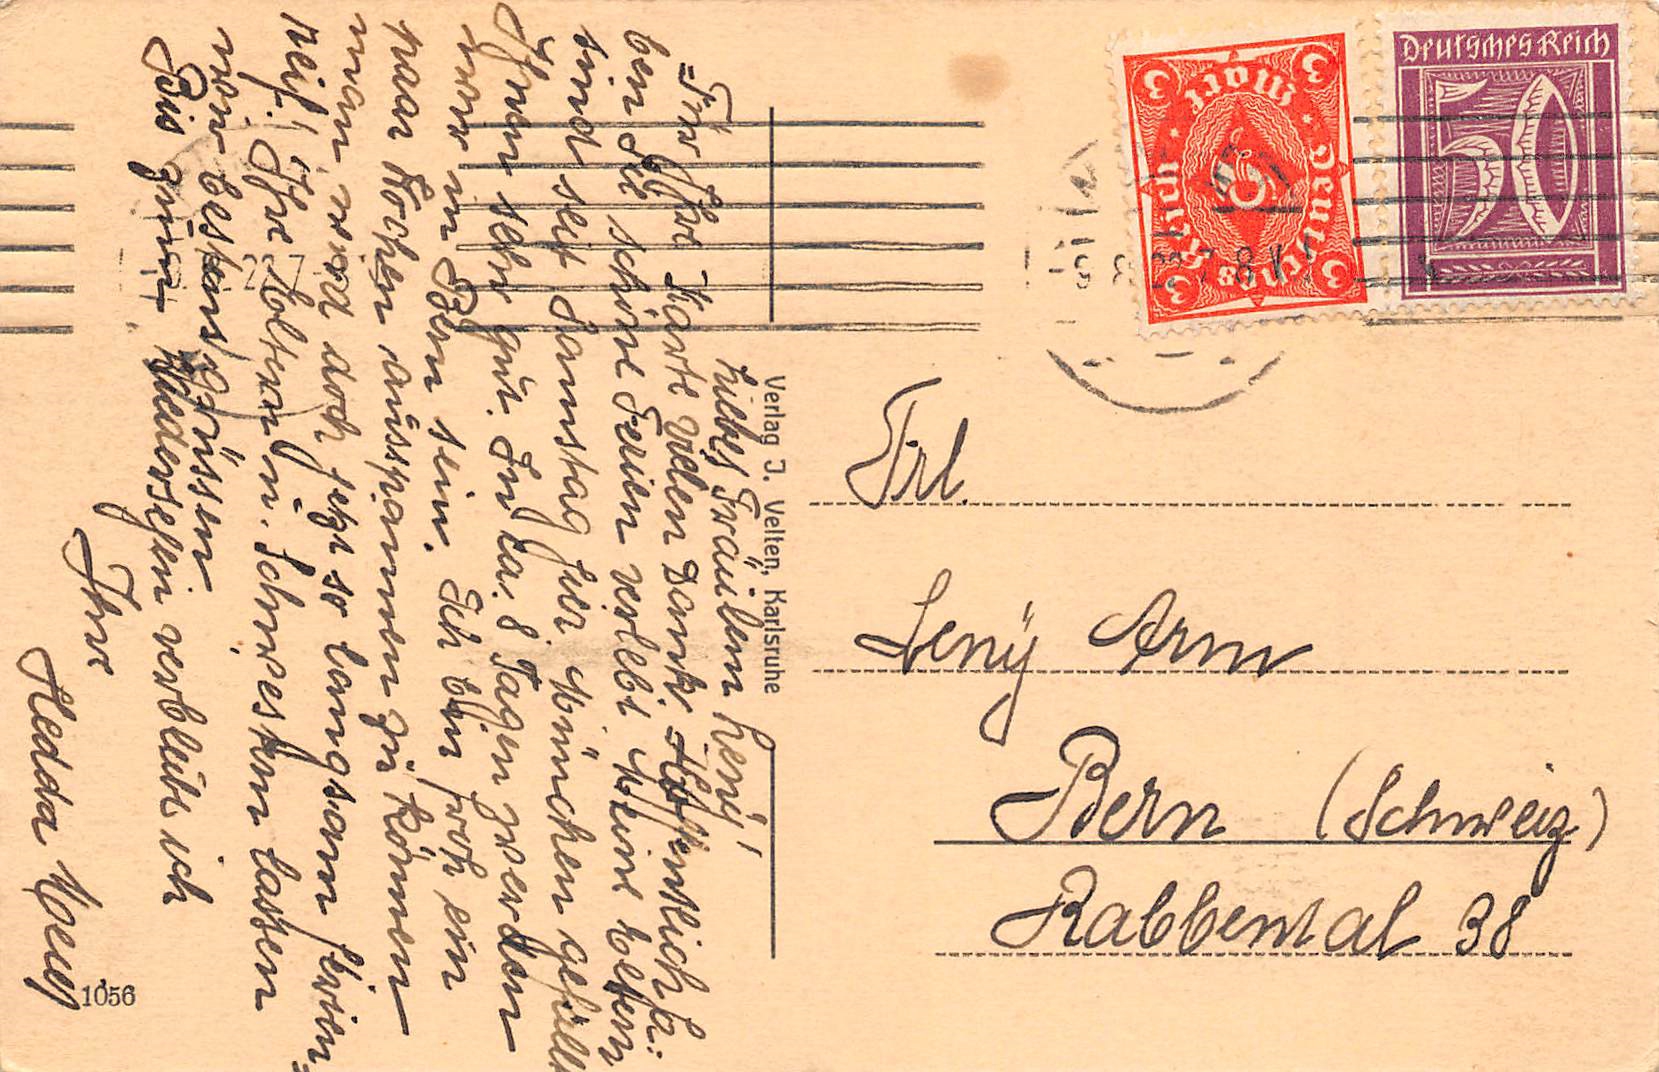 Liebes Fräulein Leny!
Für Ihre Karte vielen Dank. Hoffentlich ha=
ben Sie schöne Ferien verlebt. Meine Eltern
sind seit Samstag hier. München gefällt
Ihnen sehr gut. In ca. 8 Tagen werden
wir in Bern sein. Ich bin froh ein
paar Wochen ausspannen zu können
man wird doch jetzt so langsam ferien=
reif. Ihre Eltern u. Schwestern lassen
wir bestens grüssen
Bis zum Wiedersehen verbleibe ich
Ihre
Hedda
1056
Verlag J. Velten, Karlsruhe
Deutsches Reich
3 Mark 3
Deutsches Reich
3 3
50
Frl.
Leny Arm
Bern (Schweiz)
Rabbental 38